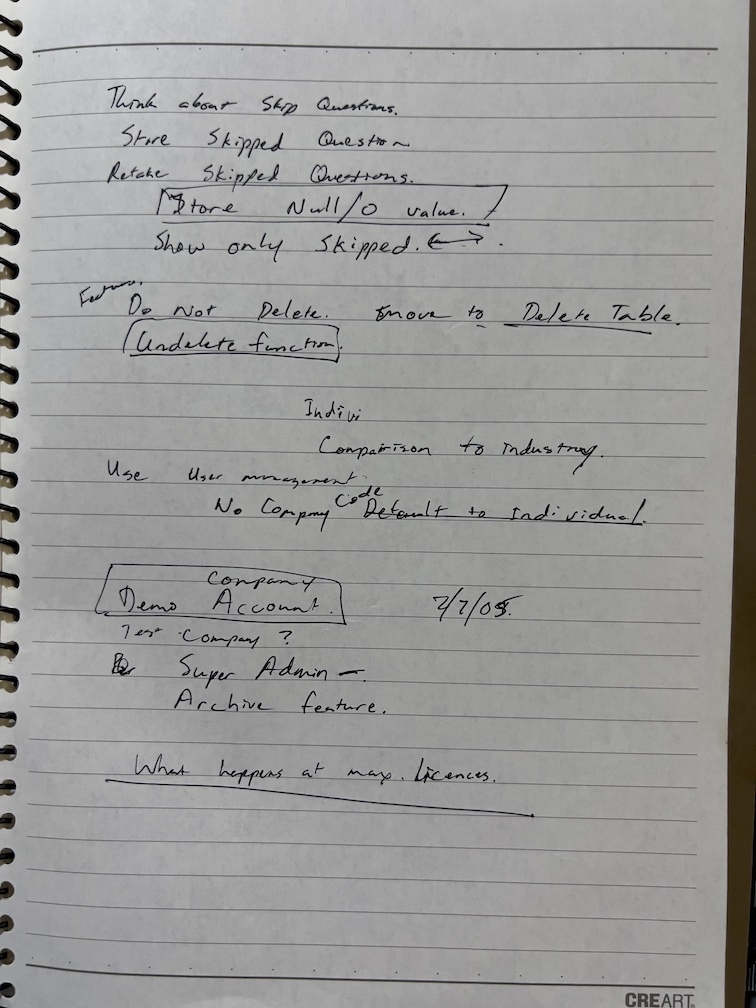 Think about Skip Questions.
Store Skipped Question
Retake Skipped Questions.
Store Null/0 value.
Show only Skipped. ↔ .
Do Not Delete. move to Delete Table.
Undelete function.
Indivi
Comparison to industry.
Use User management.
No Company Code Default to Individual.
Company
Demo Account. 7/05.
Test Company ?
Super Admin –.
Archive feature.
What happens at max. Licences.
CREART